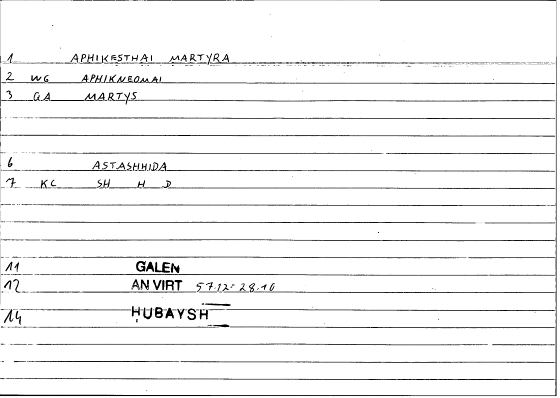 1 APHIKESTHAI MARTYRA
2 WG APHIKNEOMAI
3 GA MARTYS
6 ASTASHHIDA
7 KC SH H D
11 GALEN
12 AN VIRT 57.12-28.10
14 ḤUBAYSH